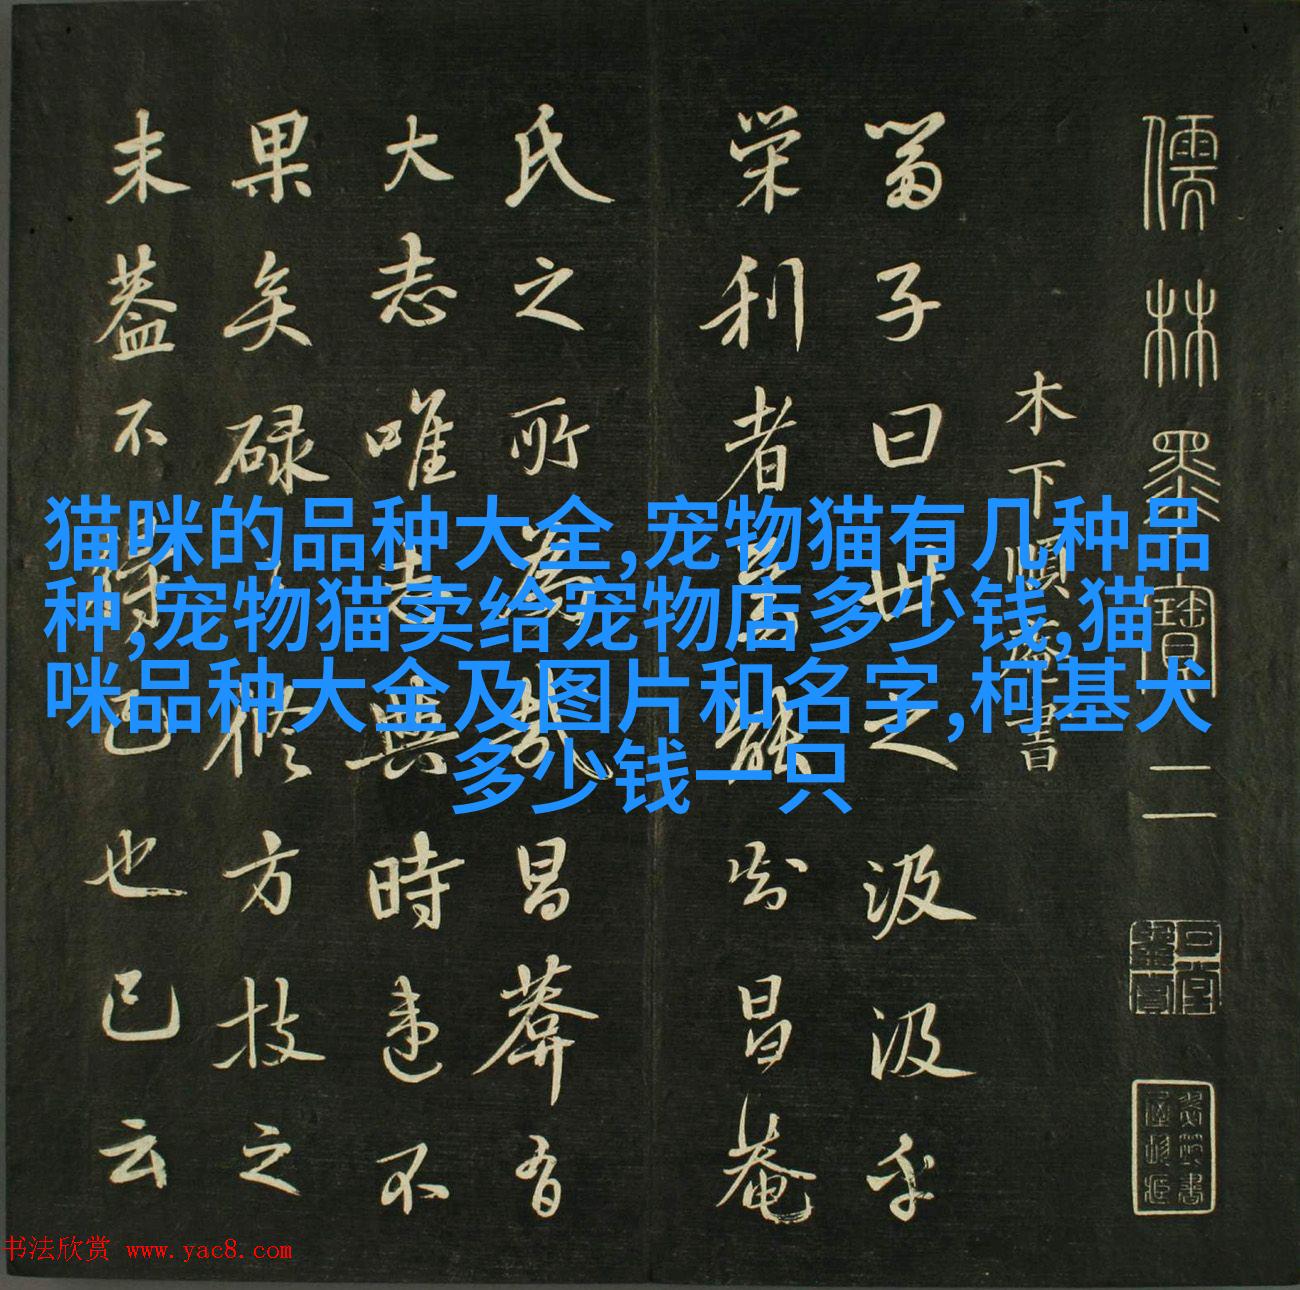 儒林墨寶 二
木下順庵書
子曰世之汲汲乎
榮利者能知昌菴
氏之所為哉昌菴有
大志唯與時違不
果矣碌修方技之
末葢不得已也已云
猫咪的品种大全,宠物猫有几种品
种,宠物猫卖给宠物店多少钱,猫
咪品种大全及图片和名字,柯基犬
多少钱一只
书法欣赏 www.yac8.com